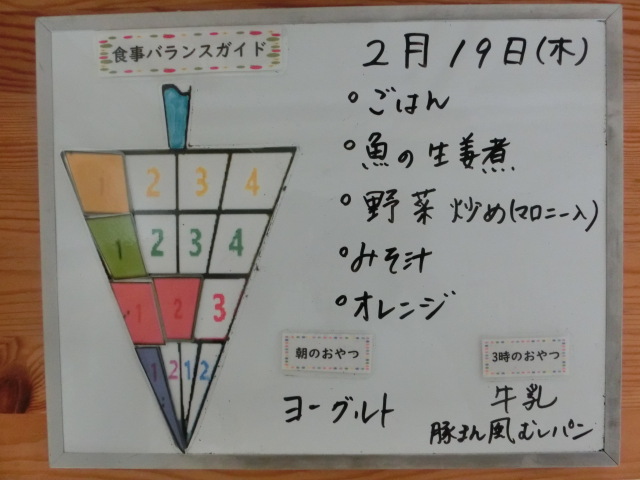 食事バランスガイド
2月19日(木)
ごはん
魚の生姜煮
野菜炒め(マロニー入)
みそ汁
オレンジ
1 2 3 4
1 2 3 4
1 2 3
1 2 1 2
朝のおやつ
ヨーグルト
3時のおやつ
牛乳
豚まん風むしパン